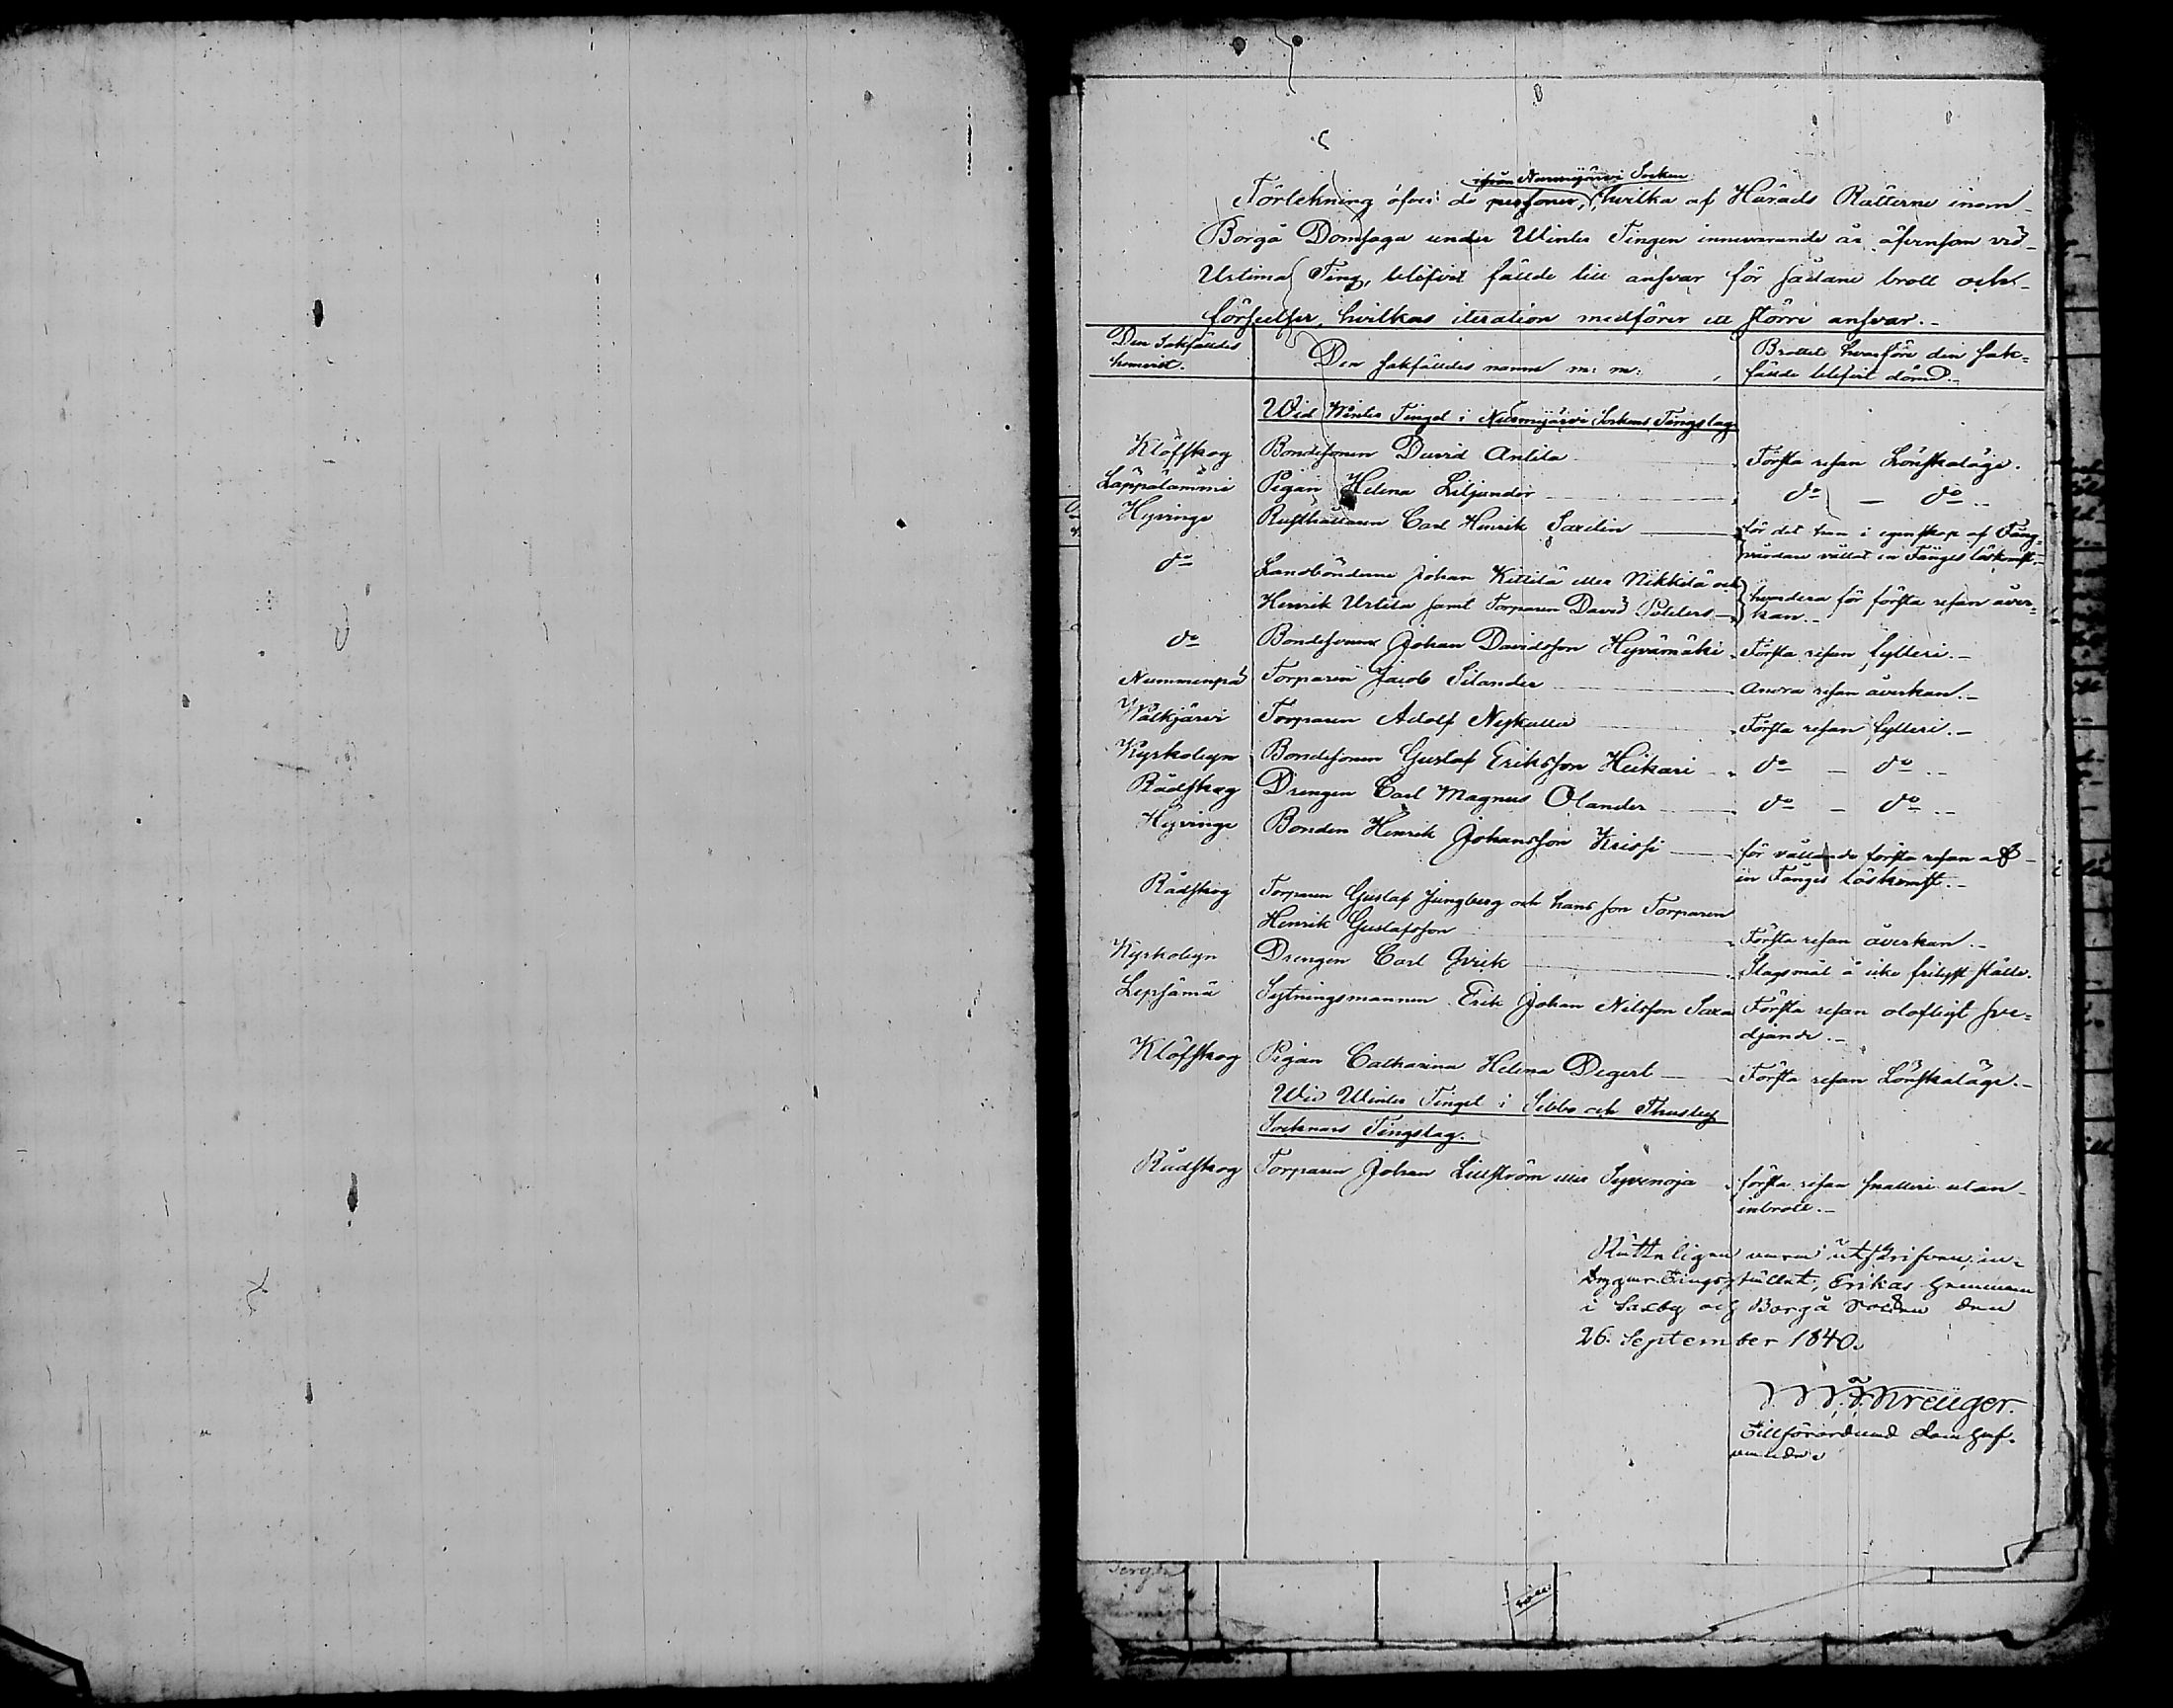 ifrån Nurmijärvi Socken
Förtekning öfver de personer, hvilka af Härads Rätterne inom
Borgå Domsaga under Winter Tingen innevarande år äfvensom vid
Urtima Ting, blifvit fällde till ansvar för sådane brott och
förseelser, hvilkas iteration medförer ett större ansvar.-
Den Sakfälldes
hemvist.
Den sakfälldes namn m: m:
Brottet hvarföre den sak=
fällde blifvit dömd.-
Wid Winter Tinget i Nurmijärvi Sockens Tingslag
Klöfskog Bondesonen David Antila Första resan Lönskaläge.
Lappalammi Pigan Helena Liljander do - do -
Hyvinge Rusthållaren Carl Henrik Saxelin för det han i egenskap af Fång=
vårdare vållat en Fånges löskomst.-
do Landbönderne Johan Kittilä eller Nikkilä och
Henrik Urtila samt Torparen David hvardera för första resan åver=
kan.-
do Bondesonen Johan Davidsson Hyvämäki Första resan fylleri.-
Nummenpä Torparen Jacob Silander Andra resan åverkan.-
Walkjärvi Torparen Adolf Första resan fylleri.-
Kyrkobyn Bondesonen Gustaf Eriksson Heikari do - do -
Rådskog Drengen Carl Magnus Olander do - do -
Hyvinge Bonden Henrik Johansson Krissi för vållande första resan af
en Fånges löskomst.-
Rådskog Torparen Gustaf Ljungberg och hans son Torparen
Henrik Gustafsson Första resan åverkan.-
Kyrkobyn Drengen Carl Slagsmål å icke fridlyst ställe.
Lepsämä Sytningsmannen Erik Johan Nilsson Saxa Första resan olofligt sve=
djande.-
Klöfskog Pigan Catharina Helena Degert Första resan Lönskaläge.-
Wid Winter Tinget i Sibbo och Thusby
Socknars Tingslag.
Rådskog Torparen Johan Lillström eller Syvenoja första resan snatteri utan
inbrott.-
Rätteligen vara utskrifven, in-
tygar. Tingsstället, Erikas hemman
i Saxby och Borgå Socken den
26. September 1840.
Kreüger.
Tillförordnad Domhaf-
vande.